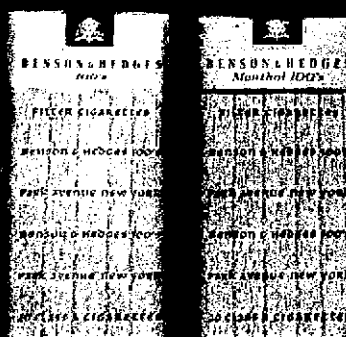 BENSON & HEDGES
100's
FILTER CIGARETTES
BENSON & HEDGES 100'S
PARK AVENUE NEW YORK
BENSON & HEDGES 100'S
PARK AVENUE NEW YORK
20 CLASS A CIGARETTES
BENSON & HEDGES
Menthol 100's
FILTER CIGARETTES
BENSON & HEDGES 100'S
PARK AVENUE NEW YORK
BENSON & HEDGES 100'S
PARK AVENUE NEW YORK
20 CLASS A CIGARETTES